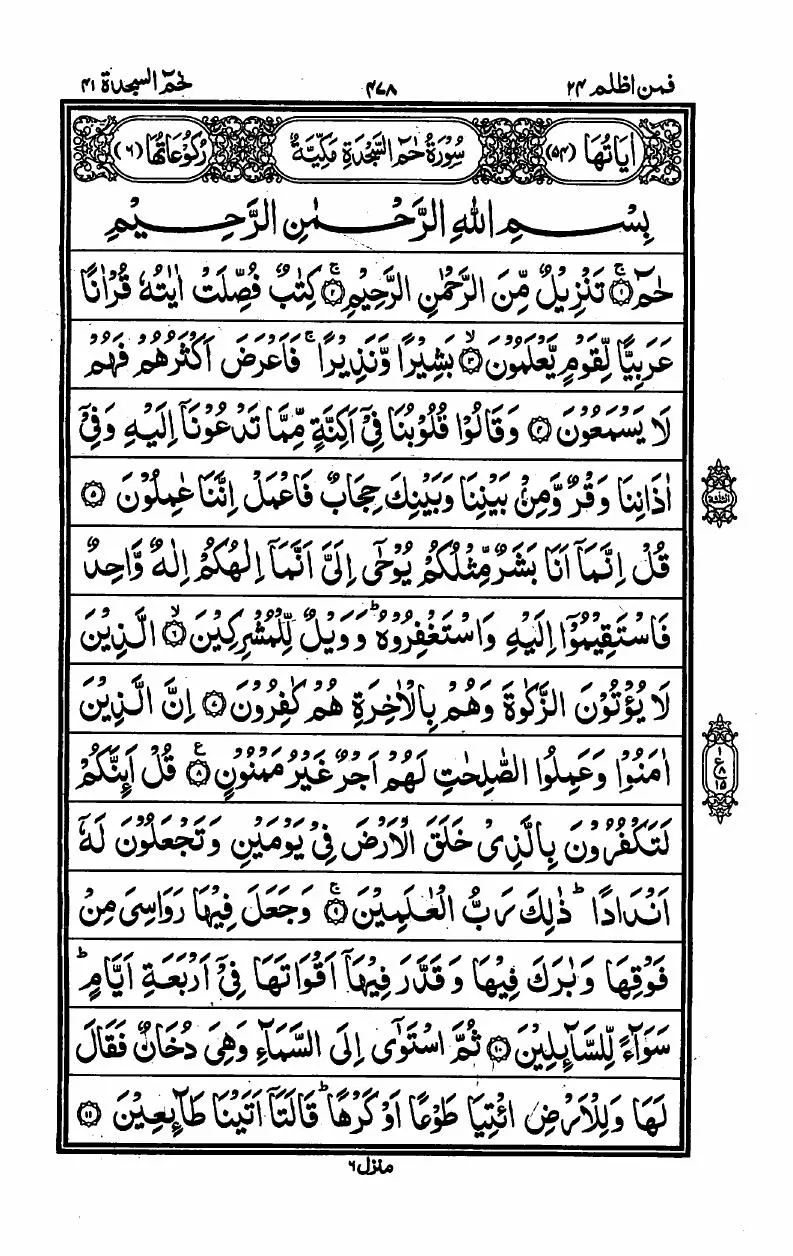 فمن اظلم ۲۴
۴۷۸
حٰمٓ السجدة ۴۱
اٰيَاتُهَا (۵۴)
سُوْرَةُ حٰمٓ السَّجْدَةِ مَكِّيَّةٌ
رُكُوْعَاتُهَا (۶)
بِسْمِ اللّٰهِ الرَّحْمٰنِ الرَّحِيْمِ
حٰمٓ ۚ۝۱ تَنْزِيْلٌ مِّنَ الرَّحْمٰنِ الرَّحِيْمِ ۚ۝۲ كِتٰبٌ فُصِّلَتْ اٰيٰتُهٗ قُرْاٰنًا
عَرَبِيًّا لِّقَوْمٍ يَّعْلَمُوْنَ ۙ۝۳ بَشِيْرًا وَّنَذِيْرًا ۚ فَاَعْرَضَ اَكْثَرُهُمْ فَهُمْ
لَا يَسْمَعُوْنَ ۝۴ وَقَالُوْا قُلُوْبُنَا فِيْۤ اَكِنَّةٍ مِّمَّا تَدْعُوْنَاۤ اِلَيْهِ وَفِيْۤ
اٰذَانِنَا وَقْرٌ وَّمِنْۢ بَيْنِنَا وَبَيْنِكَ حِجَابٌ فَاعْمَلْ اِنَّنَا عٰمِلُوْنَ ۝۵
قُلْ اِنَّمَاۤ اَنَا بَشَرٌ مِّثْلُكُمْ يُوْحٰۤى اِلَيَّ اَنَّمَاۤ اِلٰهُكُمْ اِلٰهٌ وَّاحِدٌ
فَاسْتَقِيْمُوْۤا اِلَيْهِ وَاسْتَغْفِرُوْهُ ؕ وَوَيْلٌ لِّلْمُشْرِكِيْنَ ۙ۝۶ الَّذِيْنَ
لَا يُؤْتُوْنَ الزَّكٰوةَ وَهُمْ بِالْاٰخِرَةِ هُمْ كٰفِرُوْنَ ۝۷ اِنَّ الَّذِيْنَ
اٰمَنُوْا وَعَمِلُوا الصّٰلِحٰتِ لَهُمْ اَجْرٌ غَيْرُ مَمْنُوْنٍ ۝۸ع قُلْ اَئِنَّكُمْ
لَتَكْفُرُوْنَ بِالَّذِيْ خَلَقَ الْاَرْضَ فِيْ يَوْمَيْنِ وَتَجْعَلُوْنَ لَهٗۤ
اَنْدَادًا ؕ ذٰلِكَ رَبُّ الْعٰلَمِيْنَ ۚ۝۹ وَجَعَلَ فِيْهَا رَوَاسِيَ مِنْ
فَوْقِهَا وَبٰرَكَ فِيْهَا وَقَدَّرَ فِيْهَاۤ اَقْوَاتَهَا فِيْۤ اَرْبَعَةِ اَيَّامٍ ؕ
سَوَآءً لِّلسَّآئِلِيْنَ ۝۱۰ ثُمَّ اسْتَوٰۤى اِلَى السَّمَآءِ وَهِيَ دُخَانٌ فَقَالَ
لَهَا وَلِلْاَرْضِ ائْتِيَا طَوْعًا اَوْ كَرْهًا ؕ قَالَتَاۤ اَتَيْنَا طَآئِعِيْنَ ۝۱۱
الثلثة
۱
ع
۸
۱۵
منزل ۶